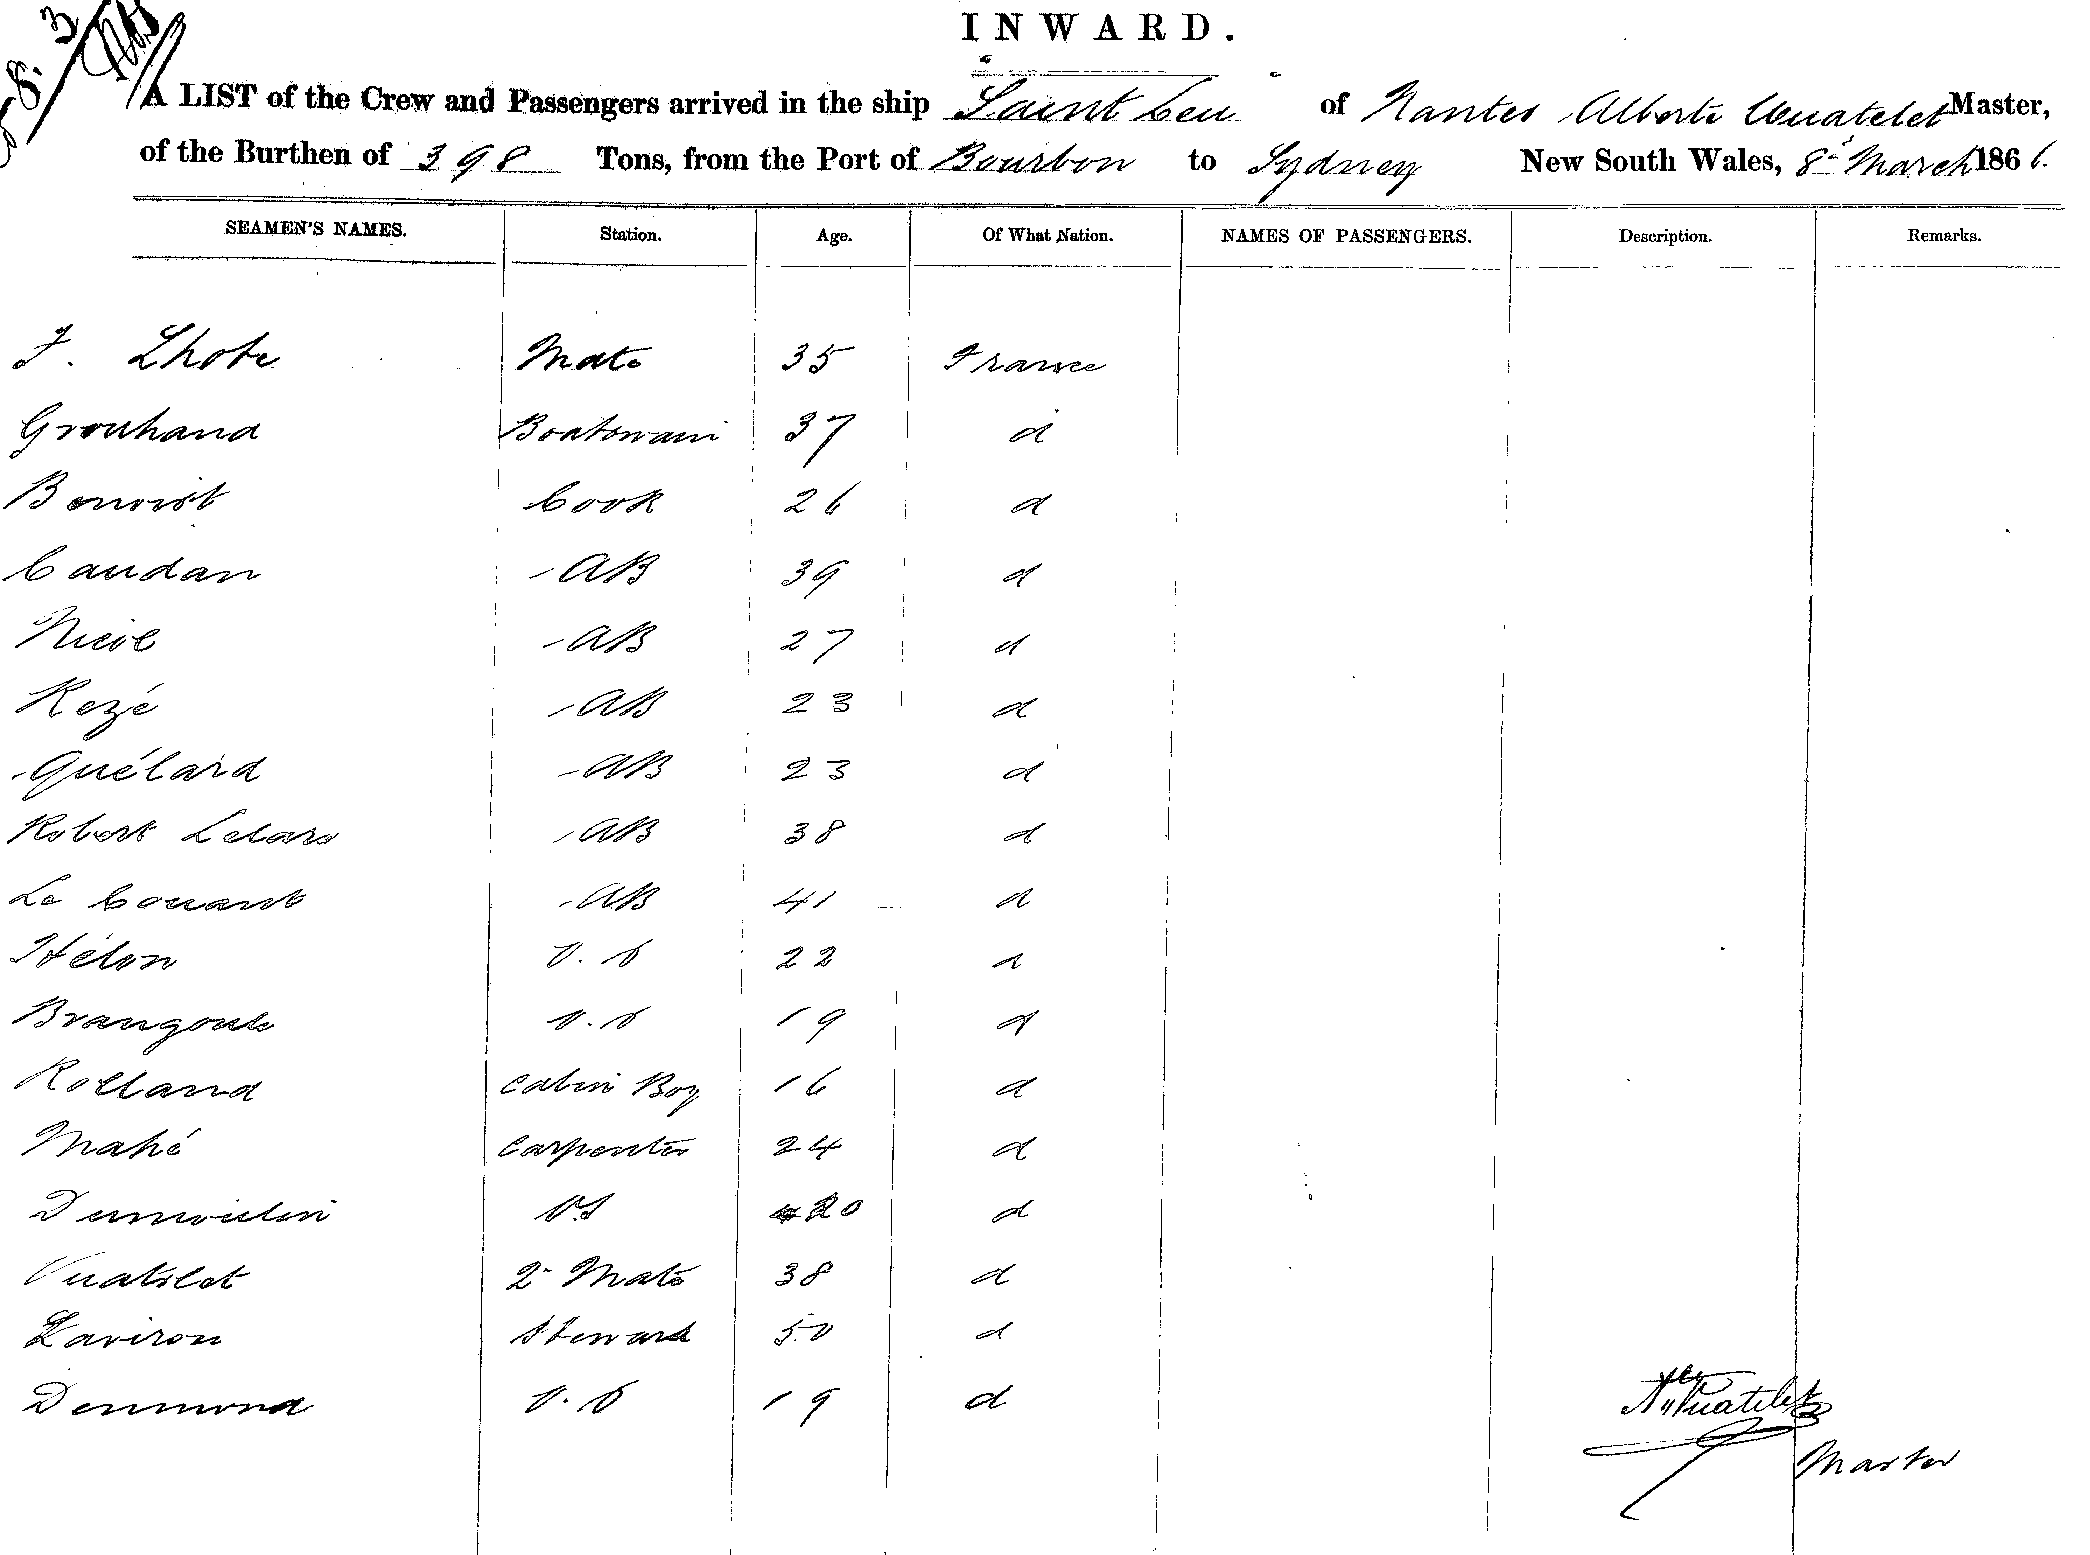 INWARD.
A LIST of the Crew and Passengers arrived in the ship Saint Leu of Nantes Alberte Vuatelet Master,
of the Burthen of 398 Tons, from the Port of Bourbon to Sydney New South Wales, 8th March 1866.
SEAMEN'S NAMES. Station. Age. Of What Nation. NAMES OF PASSENGERS. Description. Remarks.
F. Lhote Mate 35 France
Grouhand Boatswain 37 d
Benoist Cook 26 d
Caudan AB 39 d
Nicol AB 27 d
Rezé AB 23 d
Guélard AB 23 d
Robert Lelars AB 38 d
Le Couant AB 41 d
Hélon O.S 22 d
Brangoule O.S 19 d
Rolland Cabin Boy 16 d
Mahé Carpenter 24 d
Dumoulin OS 20 d
Vuatelet 2d Mate 38 d
Laviron Steward 50 d
Denmond O.S 19 d
Vuatelet
Master